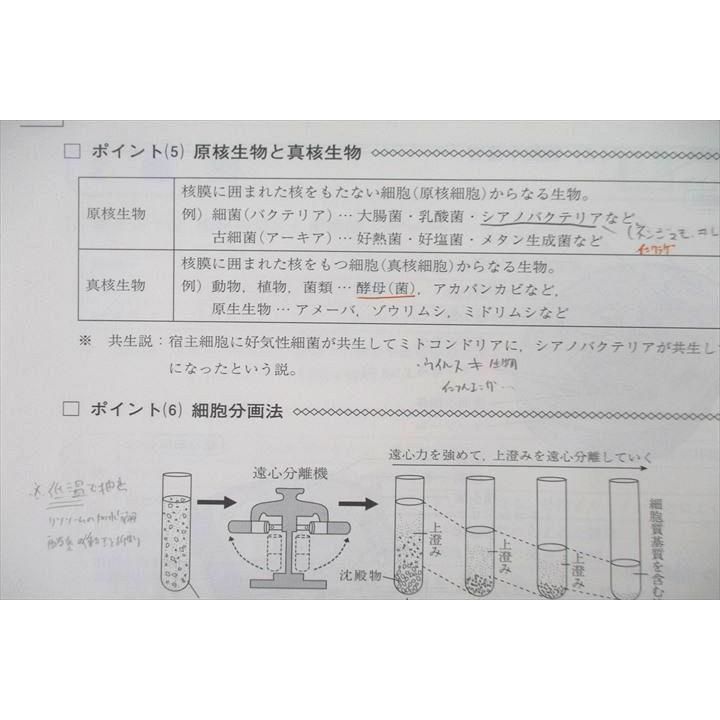 □ ポイント(5) 原核生物と真核生物
原核生物
核膜に囲まれた核をもたない細胞(原核細胞)からなる生物。
例) 細菌(バクテリア)… 大腸菌・乳酸菌・シアノバクテリアなど
古細菌(アーキア)… 好熱菌・好塩菌・メタン生成菌など
(ネンジュモ
真核生物
核膜に囲まれた核をもつ細胞(真核細胞)からなる生物。
例) 動物,植物,菌類 … 酵母(菌),アカパンカビなど,
原生生物 … アメーバ,ゾウリムシ,ミドリムシなど
※ 共生説:宿主細胞に好気性細菌が共生してミトコンドリアに,シアノバクテリアが共生し
になったという説。
・ウイルス≠生物
□ ポイント(6) 細胞分画法
遠心力を強めて,上澄みを遠心分離していく
遠心分離機
※低温で抽出
上澄み
上澄み
上澄み
沈殿物
細胞質基質を含む